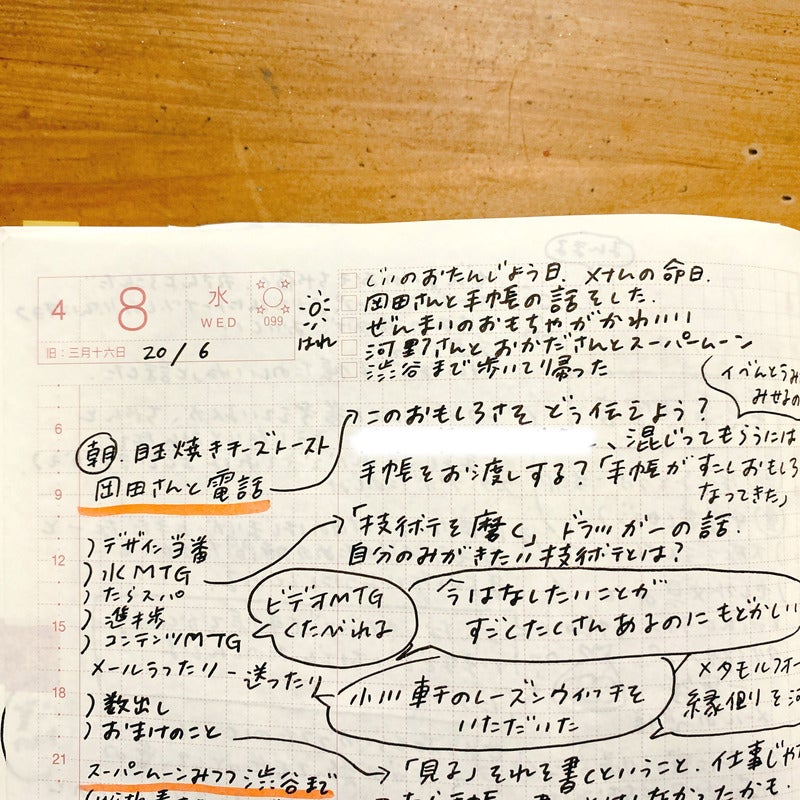 4 8 水 WED 099
旧:三月十六日 20/6
はれ
じいのおたんじょう日. メナムの命日.
岡田さんと手帳の話をした.
ぜんまいのおもちゃがかわいい
河野さんとおかださんとスーパームーン
渋谷まで歩いて帰った
イベんとうみ
みせるの
このおもしろさをどう伝えよう?
、混じってもらうには
手帳をお渡しする?「手帳がすこしおもしろ
なってきた」
6
朝. 目玉焼きチーズトースト
9
岡田さんと電話
「技術点を磨く」ドラッカーの話.
自分のみがきたい技術点とは?
12
)デザイン当番
)水MTG
)たらスパ
)進捗
15
)コンテンツMTG
ビデオMTG
くたびれる
今はなしたいことが
すごくたくさんあるのにもどかしい
メールうったり 送ったり
18
)数出し
)おまけのこと
小川軒のレーズンウィッチを
いただいた
メタモルフォー
縁側を
21
スーパームーンみつつ渋谷まで
「見る」それを書くということ. 仕事じゃ